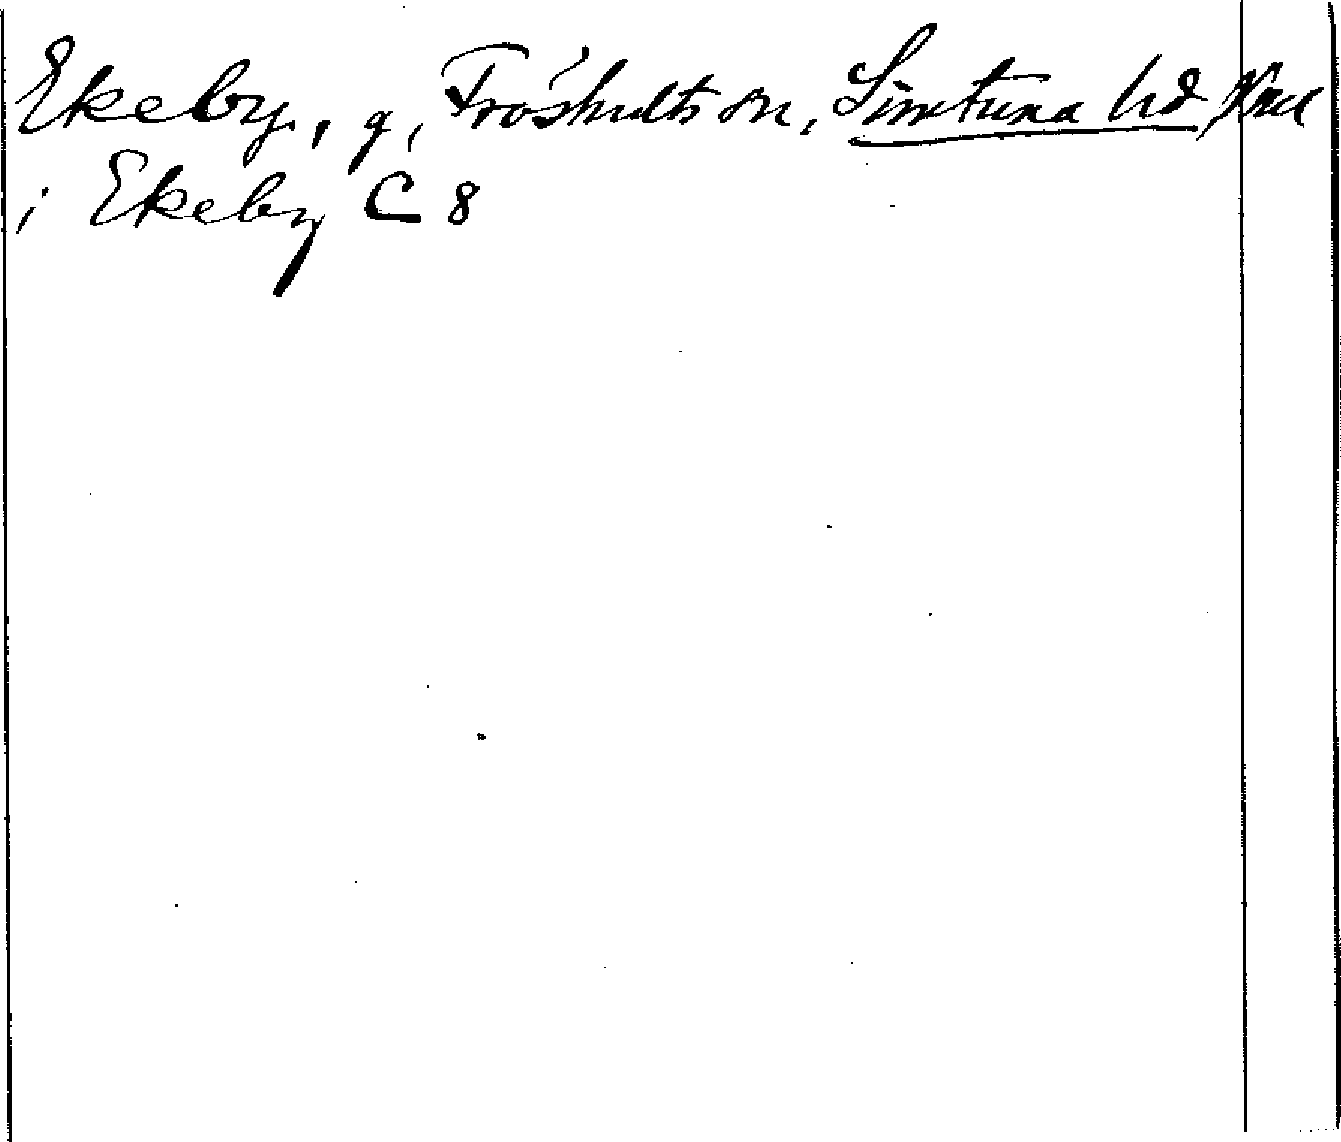 Ekeby, g, Fröshults sn, Simtuna hd
i Ekeby C 8